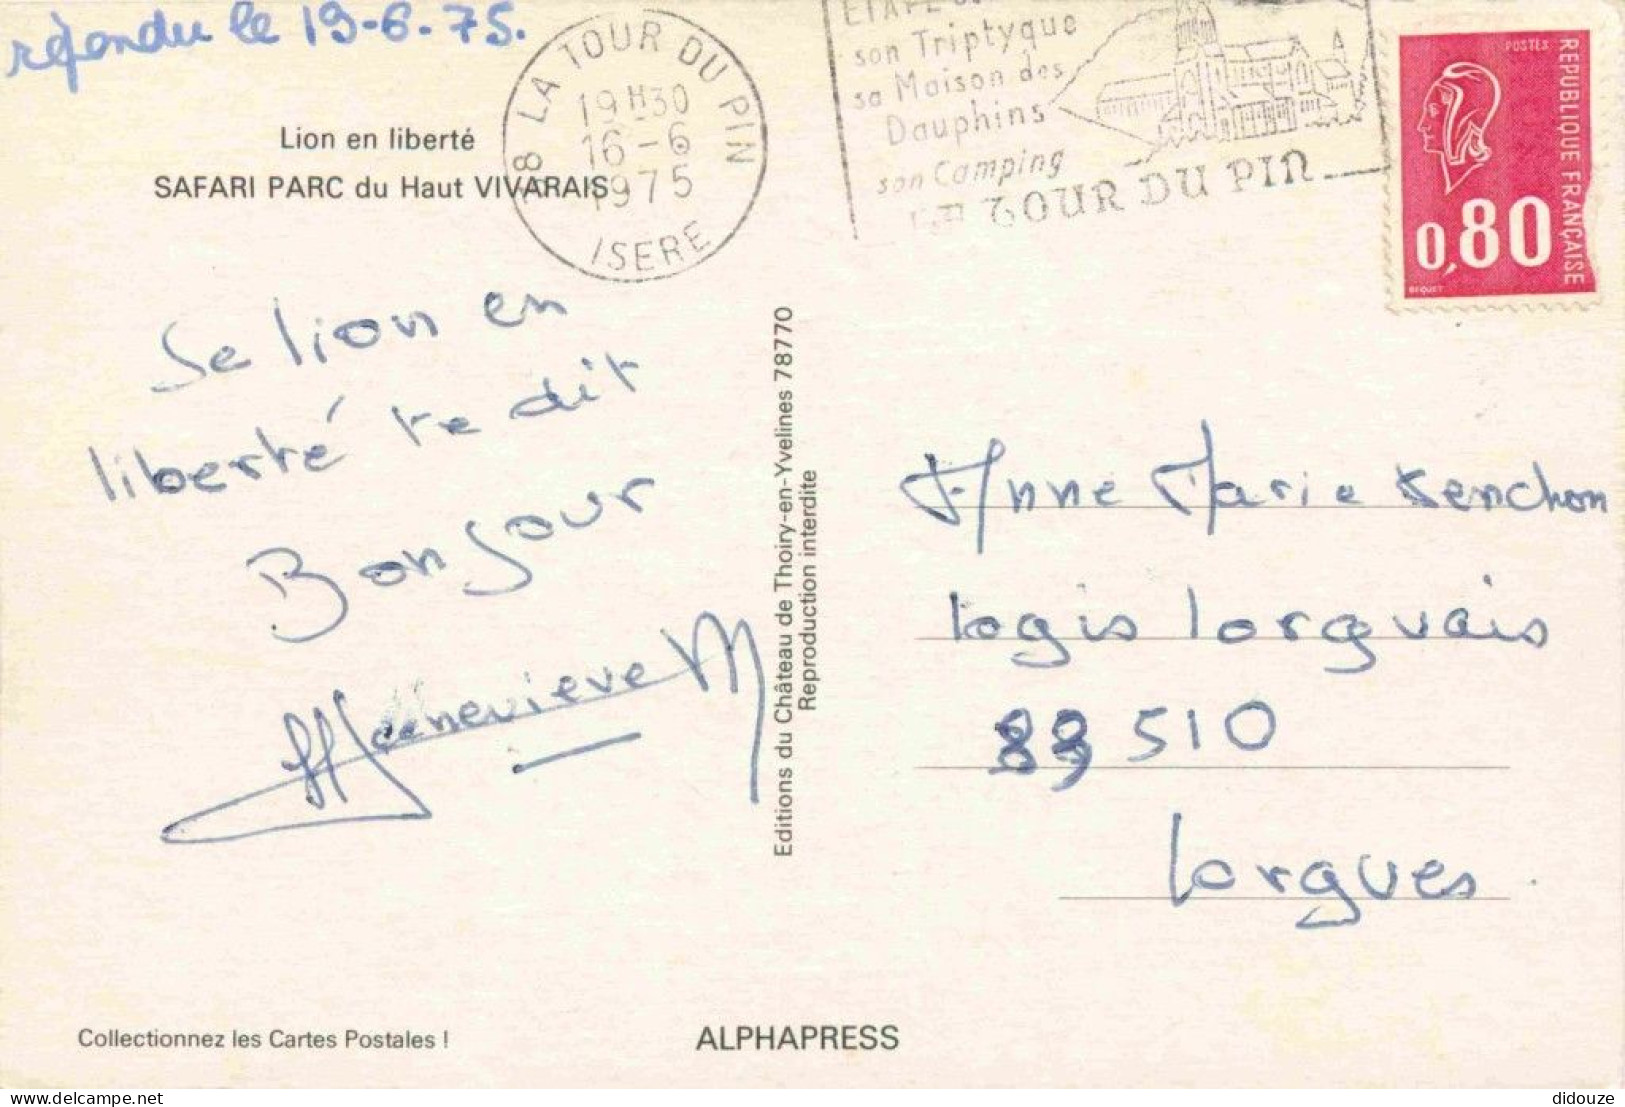 répondu le 19-6-75.
38 LA TOUR DU PIN
19H30
16-6
1975
ISERE
son Triptyque
sa Maison des
Dauphins
son Camping
LA TOUR DU PIN
POSTES
RÉPUBLIQUE FRANÇAISE
0,80
BEQUET
Lion en liberté
SAFARI PARC du Haut VIVARAIS
Se lion en
liberté te dit
Bonjour
Genevieve M
Editions du Château de Thoiry-en-Yvelines 78770
Reproduction interdite
Anne Marie Kenchon
logis lorguais
83 510
lorgues
Collectionnez les Cartes Postales !
ALPHAPRESS
didouze